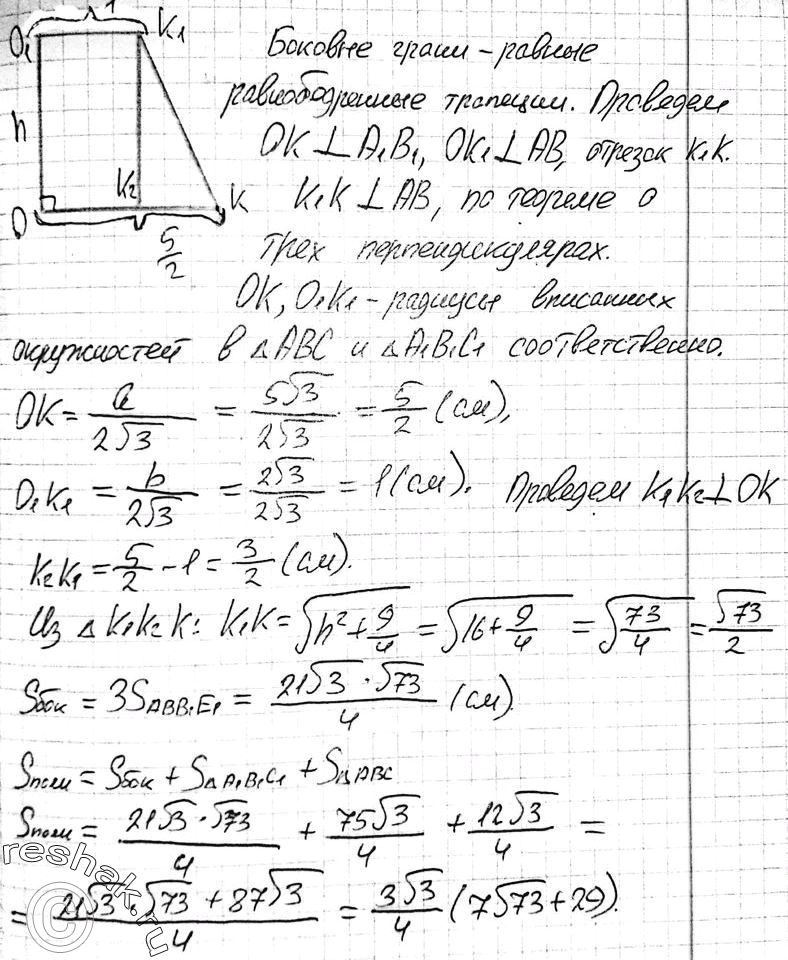 1
O₁ K₁
h
K₂
O K
5/2
Боковые грани – равные
равнобедренные трапеции. Проведем
OK ⊥ A₁B₁, OK₁ ⊥ AB, отрезок K₁K.
K₁K ⊥ AB, по теореме о
трех перпендикулярах.
OK, O₁K₁ – радиусы вписанных
окружностей в △ABC и △A₁B₁C₁ соответственно.
OK = a/(2√3) = 5√3/(2√3) = 5/2 (см),
O₁K₁ = b/(2√3) = 2√3/(2√3) = 1 (см). Проведем K₁K₂ ⊥ OK
K₂K₁ = 5/2 – 1 = 3/2 (см).
Из △K₁K₂K: K₁K = √(h² + 9/4) = √(16 + 9/4) = √(73/4) = √73/2
Sбок = 3S ABB₁E₁ = 21√3 · √73/4 (см).
Sполн = Sбок + S△A₁B₁C₁ + S△ABC
Sполн = 21√3 · √73/4 + 75√3/4 + 12√3/4 =
= (21√3 · √73 + 87√3)/4 = 3√3/4 (7√73 + 29).
reshak.ru
©